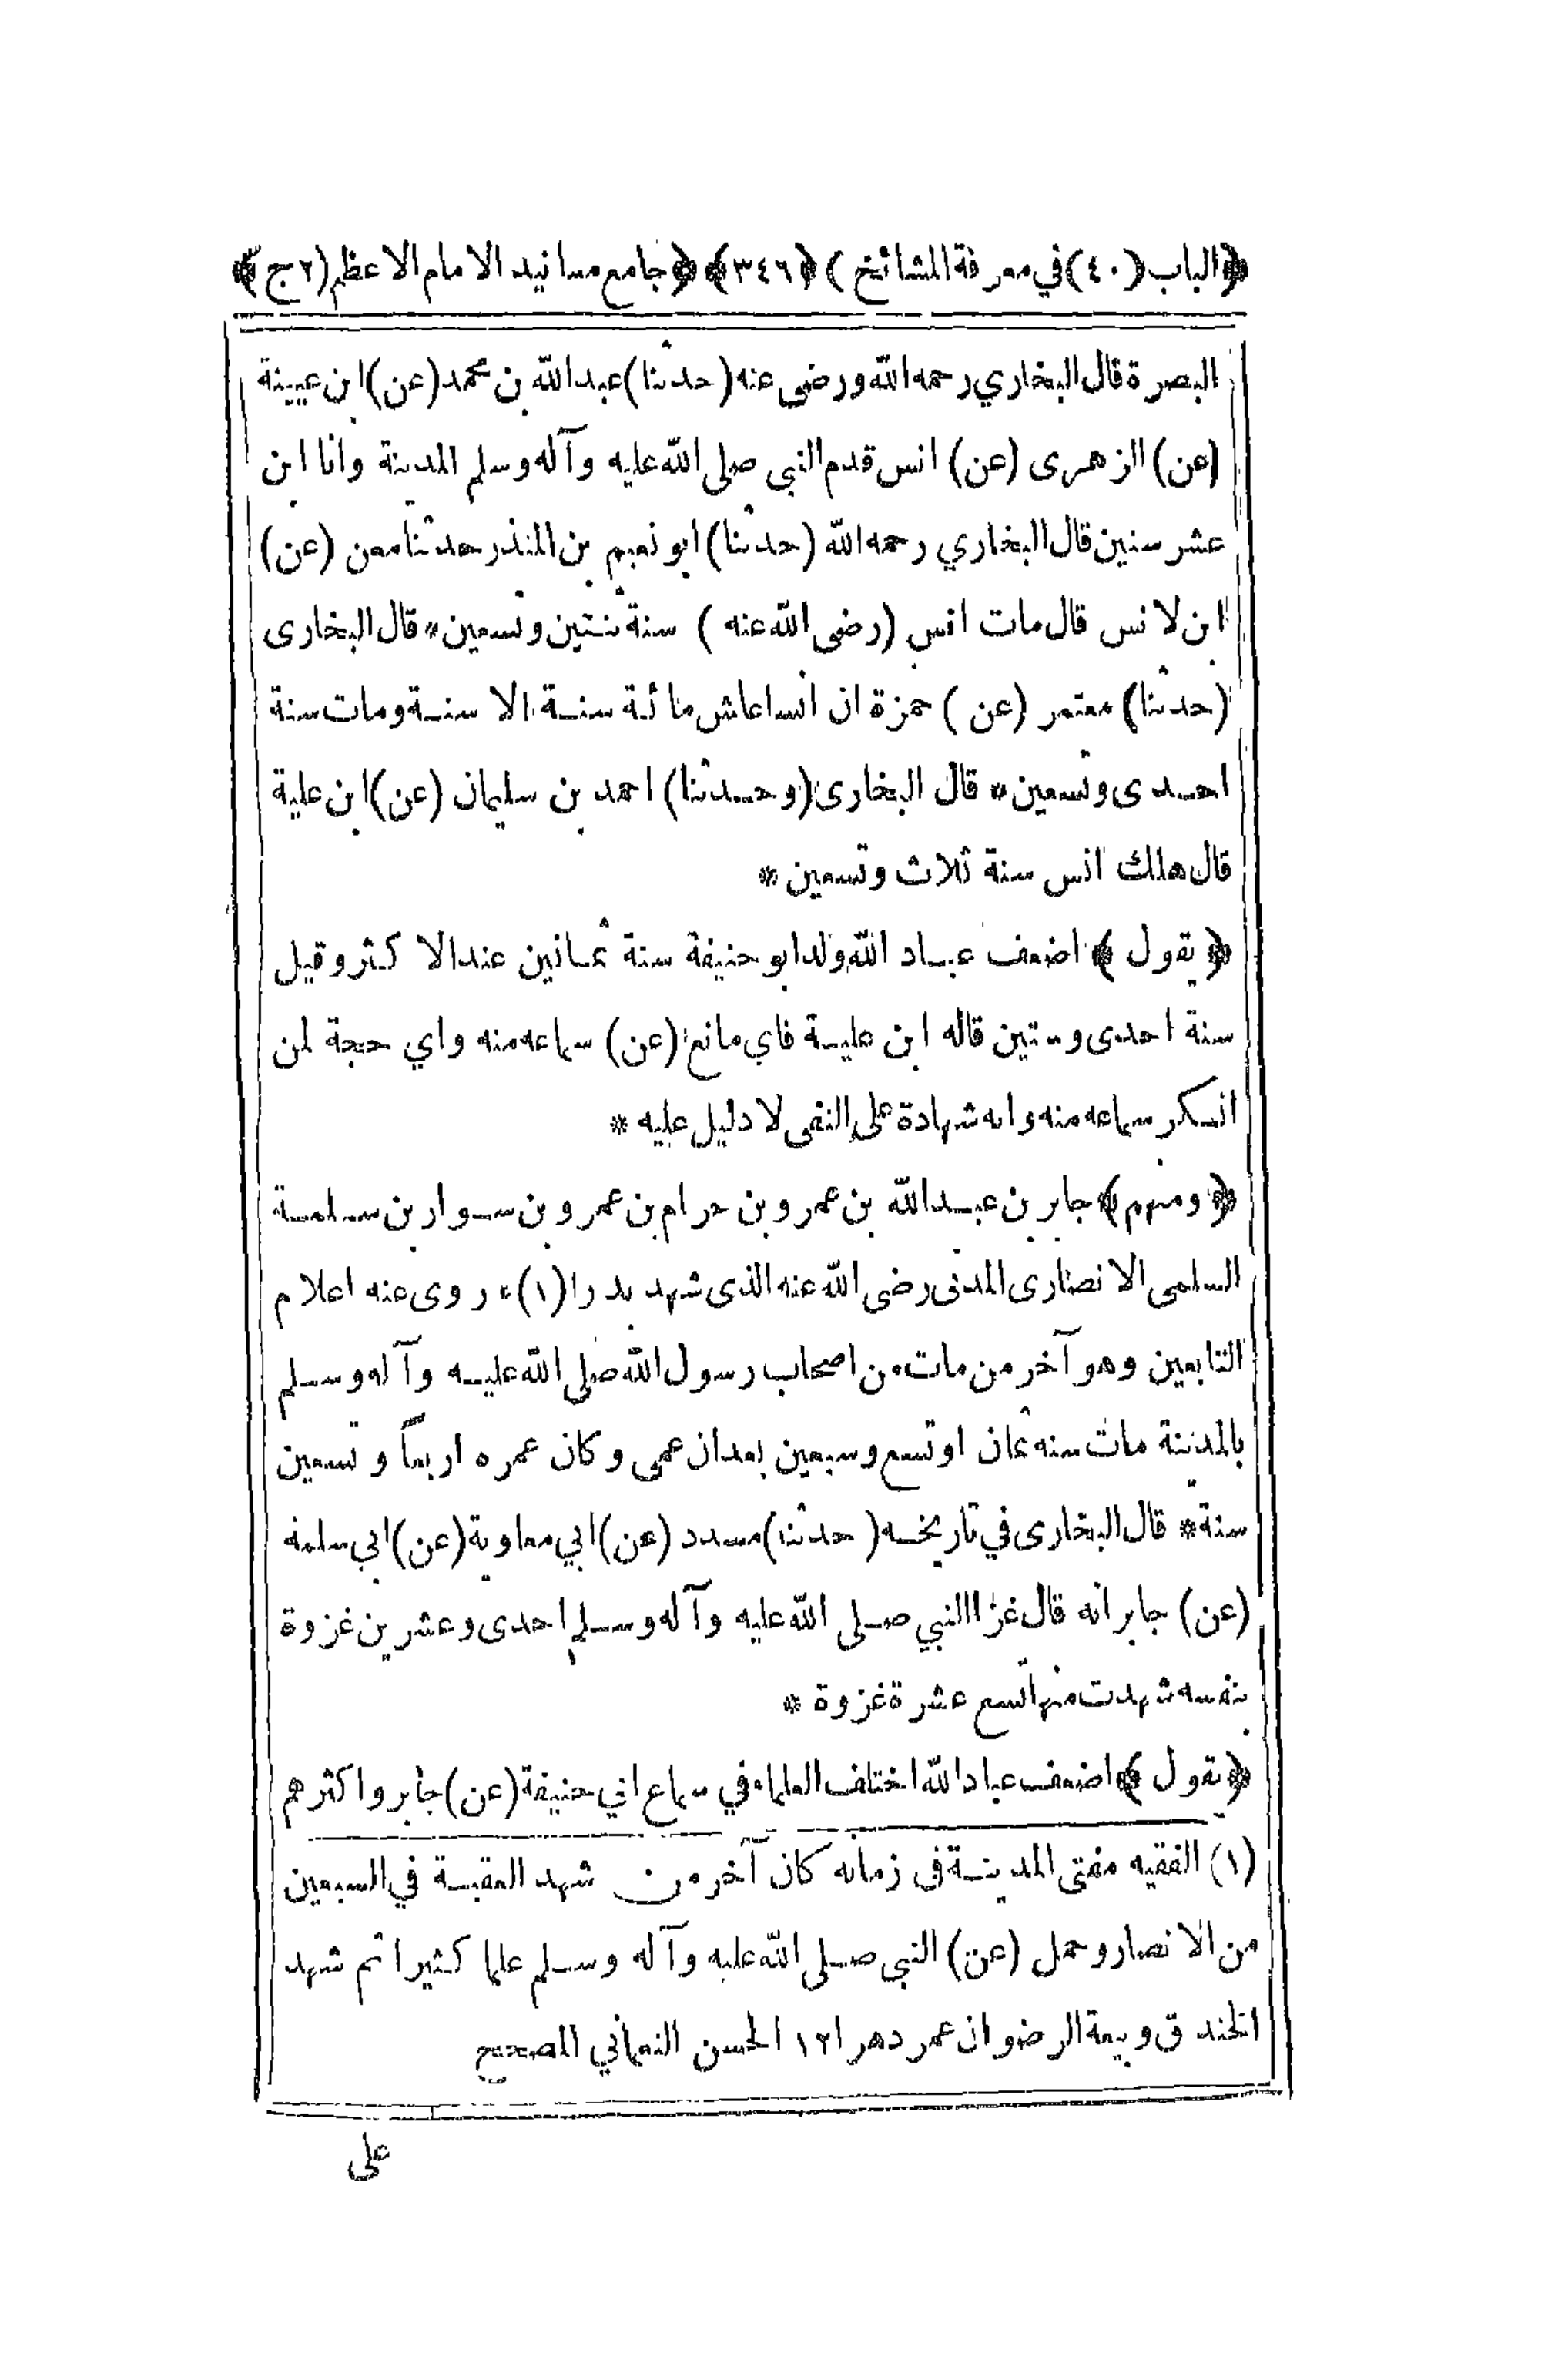 ﴿الباب (٤٠) في معرفة المشائخ﴾ ﴿٣٤٦﴾ ﴿جامع مسانيد الامام الاعظم (ج٢)﴾
البصرة قال البخاري رحمه الله ورضى عنه (حدثنا) عبد الله بن محمد (عن) ابن عيينة
(عن) الزهرى (عن) انس قدم النبي صلى الله عليه وآله وسلم المدينة وانا ابن
عشر سنين قال البخاري رحمه الله (حدثنا) ابو نعيم بن المنذر حدثنا معن (عن)
ابن لانس قال مات انس (رضى الله عنه) سنة ثنتين وتسعين * قال البخارى
(حدثنا) معتمر (عن) حمزة ان انسا عاش مائة سنة الا سنة ومات سنة
احدى وتسعين * قال البخارى (وحدثنا) احمد بن سليمان (عن) ابن علية
قال هلك انس سنة ثلاث وتسعين *
﴿يقول﴾ اضعف عباد الله ولد ابو حنيفة سنة ثمانين عند الاكثر وقيل
سنة احدى وستين قاله ابن علية فاي مانع (عن) سماعه منه واي حجة لمن
انكر سماعه منه وانه شهادة على النفى لا دليل عليه *
﴿ومنهم﴾ جابر بن عبد الله بن عمرو بن حرام بن عمرو بن سوار بن سلمة
السلمى الانصارى المدنى رضى الله عنه الذى شهد بدرا (١) * روى عنه اعلام
التابعين وهو آخر من مات من اصحاب رسول الله صلى الله عليه وآله وسلم
بالمدينة مات سنه ثمان او تسع وسبعين بعد ان عمى وكان عمره اربعاً وتسعين
سنة * قال البخارى في تاريخه (حدثنا) مسدد (عن) ابي معاوية (عن) ابى سلمة
(عن) جابر انه قال غزا النبي صلى الله عليه وآله وسلم احدى وعشرين غزوة
بنفسه شهدت منها تسع عشرة غزوة *
﴿يقول﴾ اضعف عباد الله اختلف العلماء في سماع ابي حنيفة (عن) جابر واكثرهم
(١) الفقيه مفتى المدينة فى زمانه كان آخر من شهد العقبة في السبعين
من الانصار وحمل (عن) النبي صلى الله عليه وآله وسلم علما كثيرا ثم شهد
الخندق وبيعة الرضوان عمر دهرا ١٢ الحسن النعماني المصحح
على